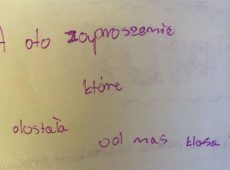 A oto zaproszenie
które
dostała
od nas klasa